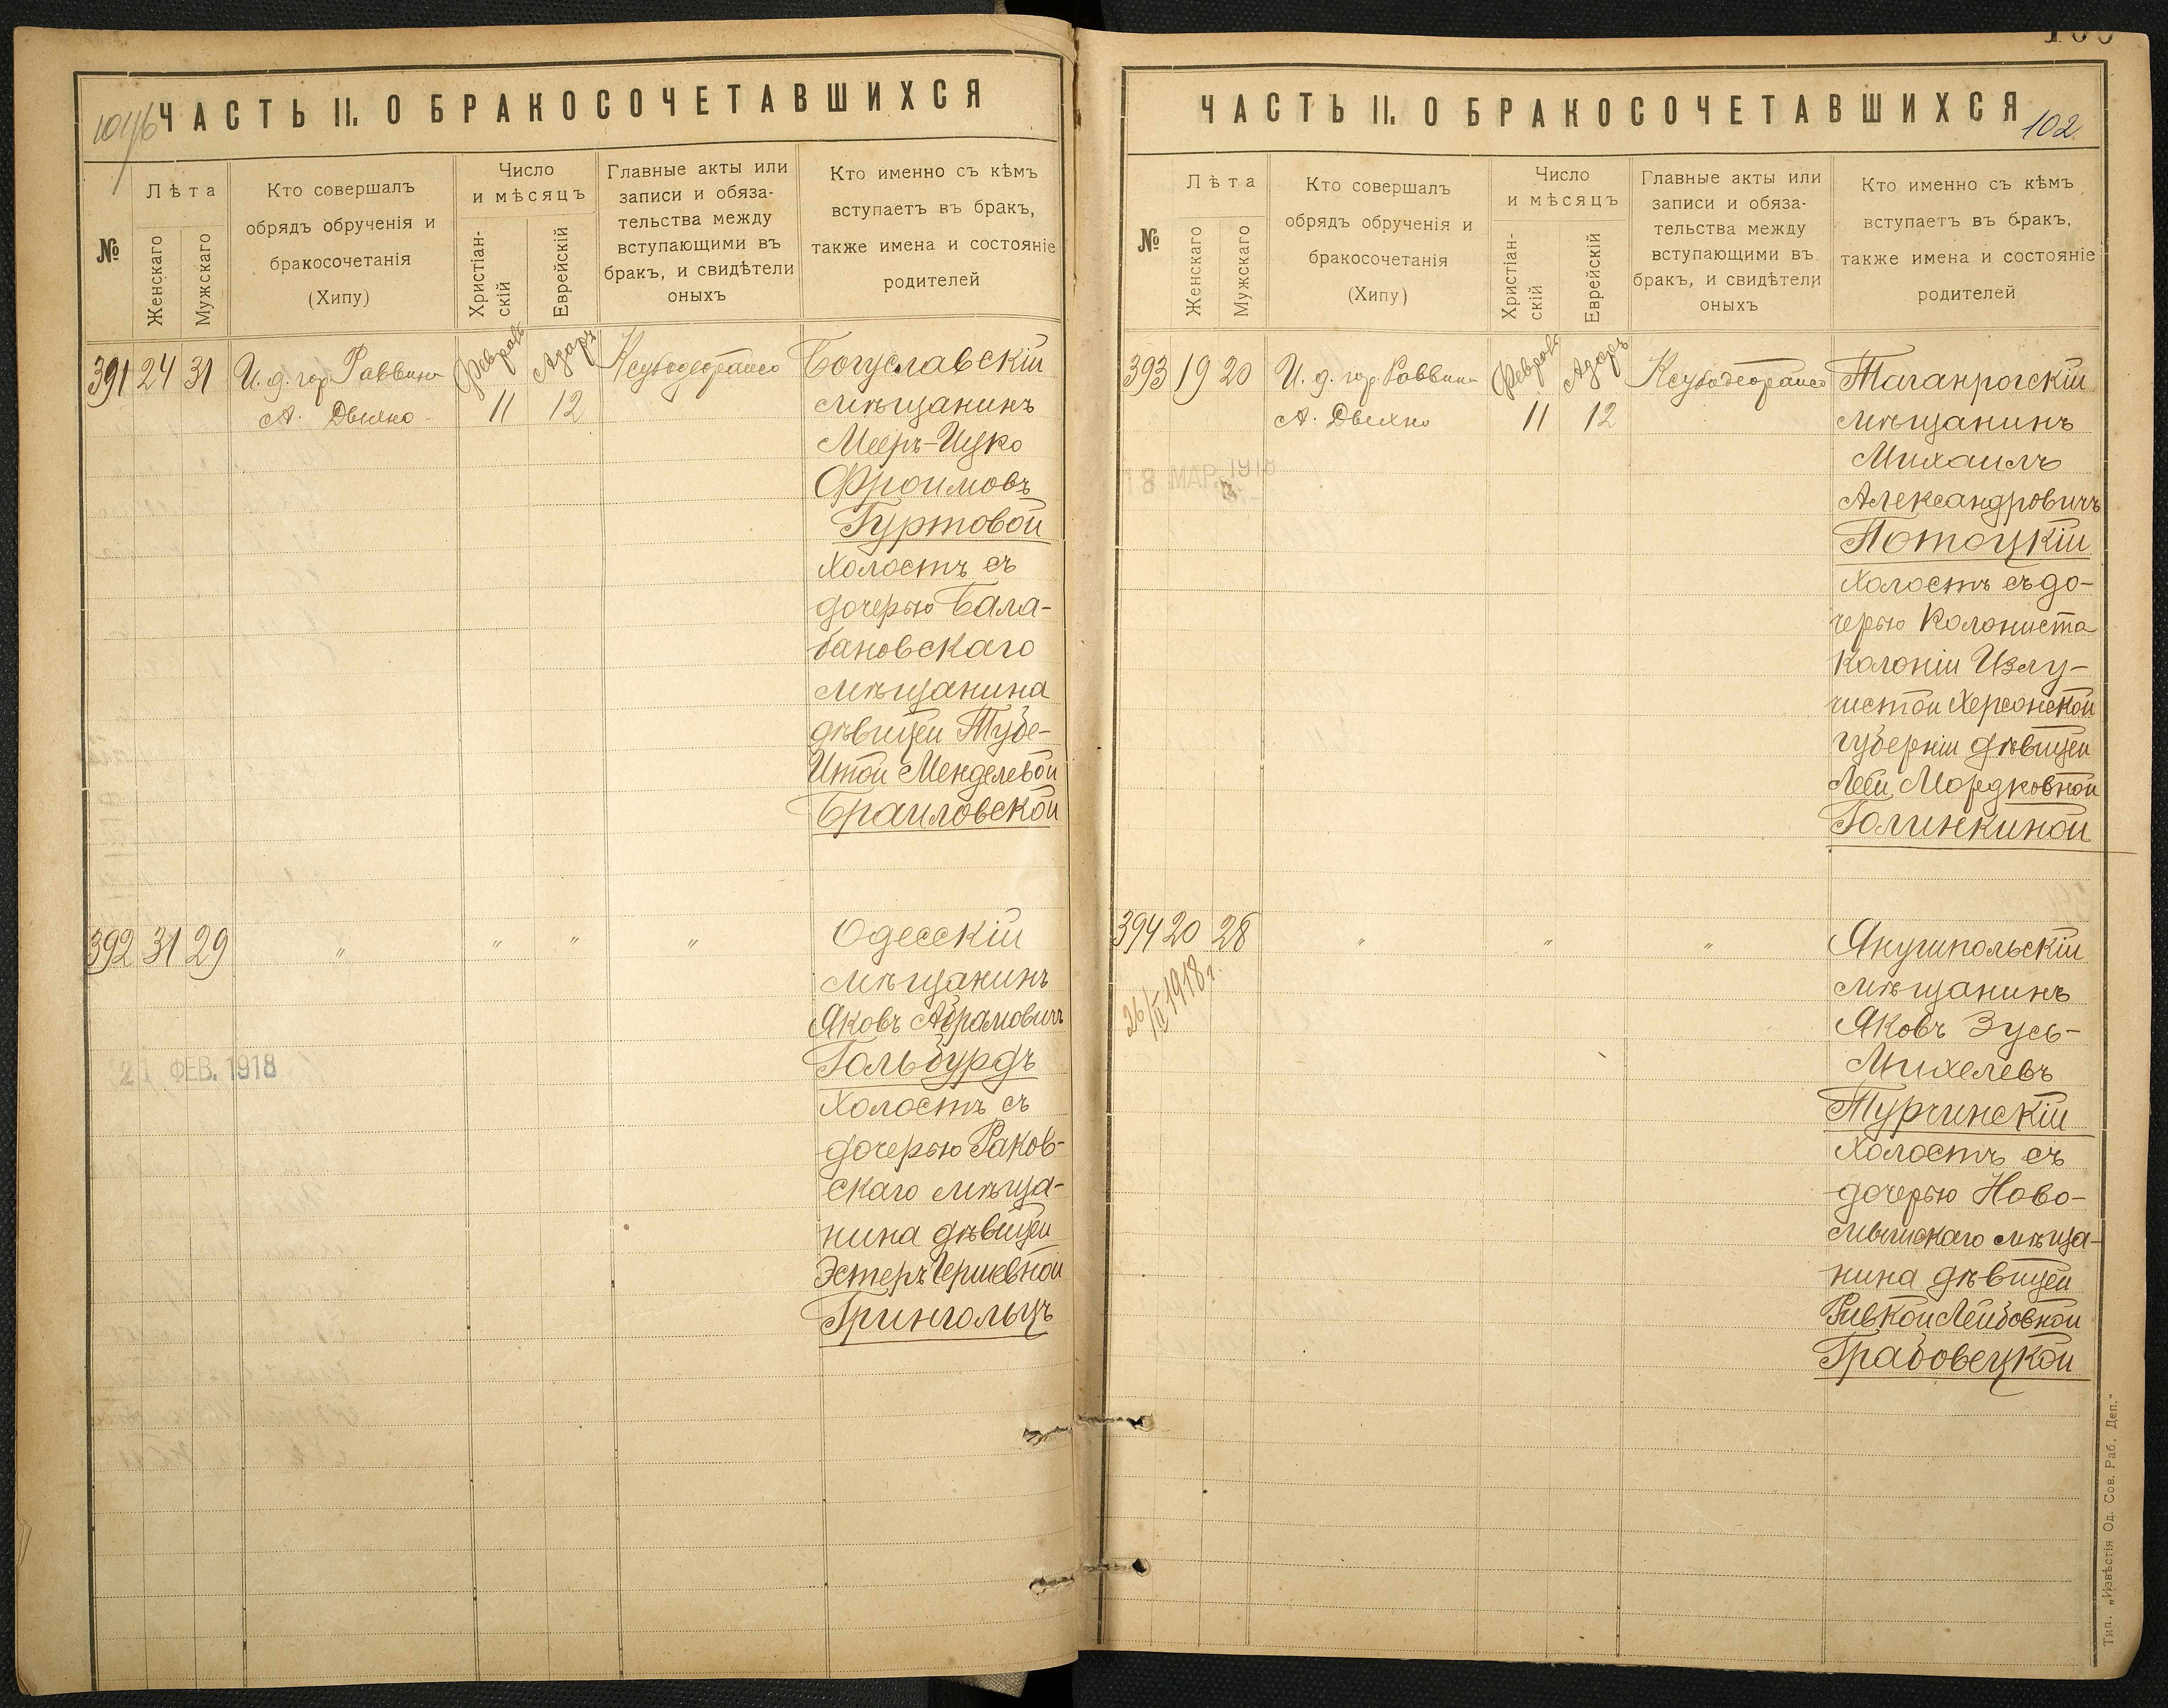 ЧАСТЬ II. О БРАКОСОЧЕТАВШИХСЯ
№
Лѣта
Женскаго
Мужскаго
Кто совершалъ
обрядъ обрученія и
бракосочетанія
(Хипу)
Число
и мѣсяцъ
Христіан-
скій
Еврейскій
Главные акты или
записи и обяза-
тельства между
вступающими въ
бракъ, и свидѣтели
оныхъ
Кто именно съ кѣмъ
вступаетъ въ бракъ,
также имена и состояніе
родителей
391 24 31 И. д. гор. Раввина
А. Двихно
Февраль
11
Адаръ
12
Богуславскій
мѣщанинъ
Мееръ-Ицко
Фроимовъ
Гуртовой
холостъ съ
дочерью Бала-
бановскаго
мѣщанина
дѣвицей Тубе-
Итой Менделевой
Браиловской
392 31 29 " " " "
Одесскій
мѣщанинъ
Яковъ Абрамовичъ
Гольбурдъ
холостъ съ
дочерью Раков-
скаго мѣща-
нина дѣвицей
Эстеръ Гершевной
Грингольцъ
21 ФЕВ. 1918
ЧАСТЬ II. О БРАКОСОЧЕТАВШИХСЯ
102
№
Лѣта
Женскаго
Мужскаго
Кто совершалъ
обрядъ обрученія и
бракосочетанія
(Хипу)
Число
и мѣсяцъ
Христіан-
скій
Еврейскій
Главные акты или
записи и обяза-
тельства между
вступающими въ
бракъ, и свидѣтели
оныхъ
Кто именно съ кѣмъ
вступаетъ въ бракъ,
также имена и состояніе
родителей
393 19 20 И. д. гор. Раввина
А. Двихно
Февраль
11
Адаръ
12
18 МАР. 1918
Таганрогскій
мѣщанинъ
Михаилъ
Александровичъ
Потоцкій
холостъ съ до-
черью колониста
колоніи Излу-
чистой Херсонской
губерніи дѣвицей
Леей Мордковной
Голинкиной
394 20 28 " " "
26/III 1918 г.
Янушпольскій
мѣщанинъ
Яковъ Зусь-
Михелевъ
Турчинскій
холостъ съ
дочерью Ново-
мѣща-
нина дѣвицей
Ривкой Лейбовной
Грабовецкой
Тип. „Извѣстія Од. Сов. Раб. Деп."